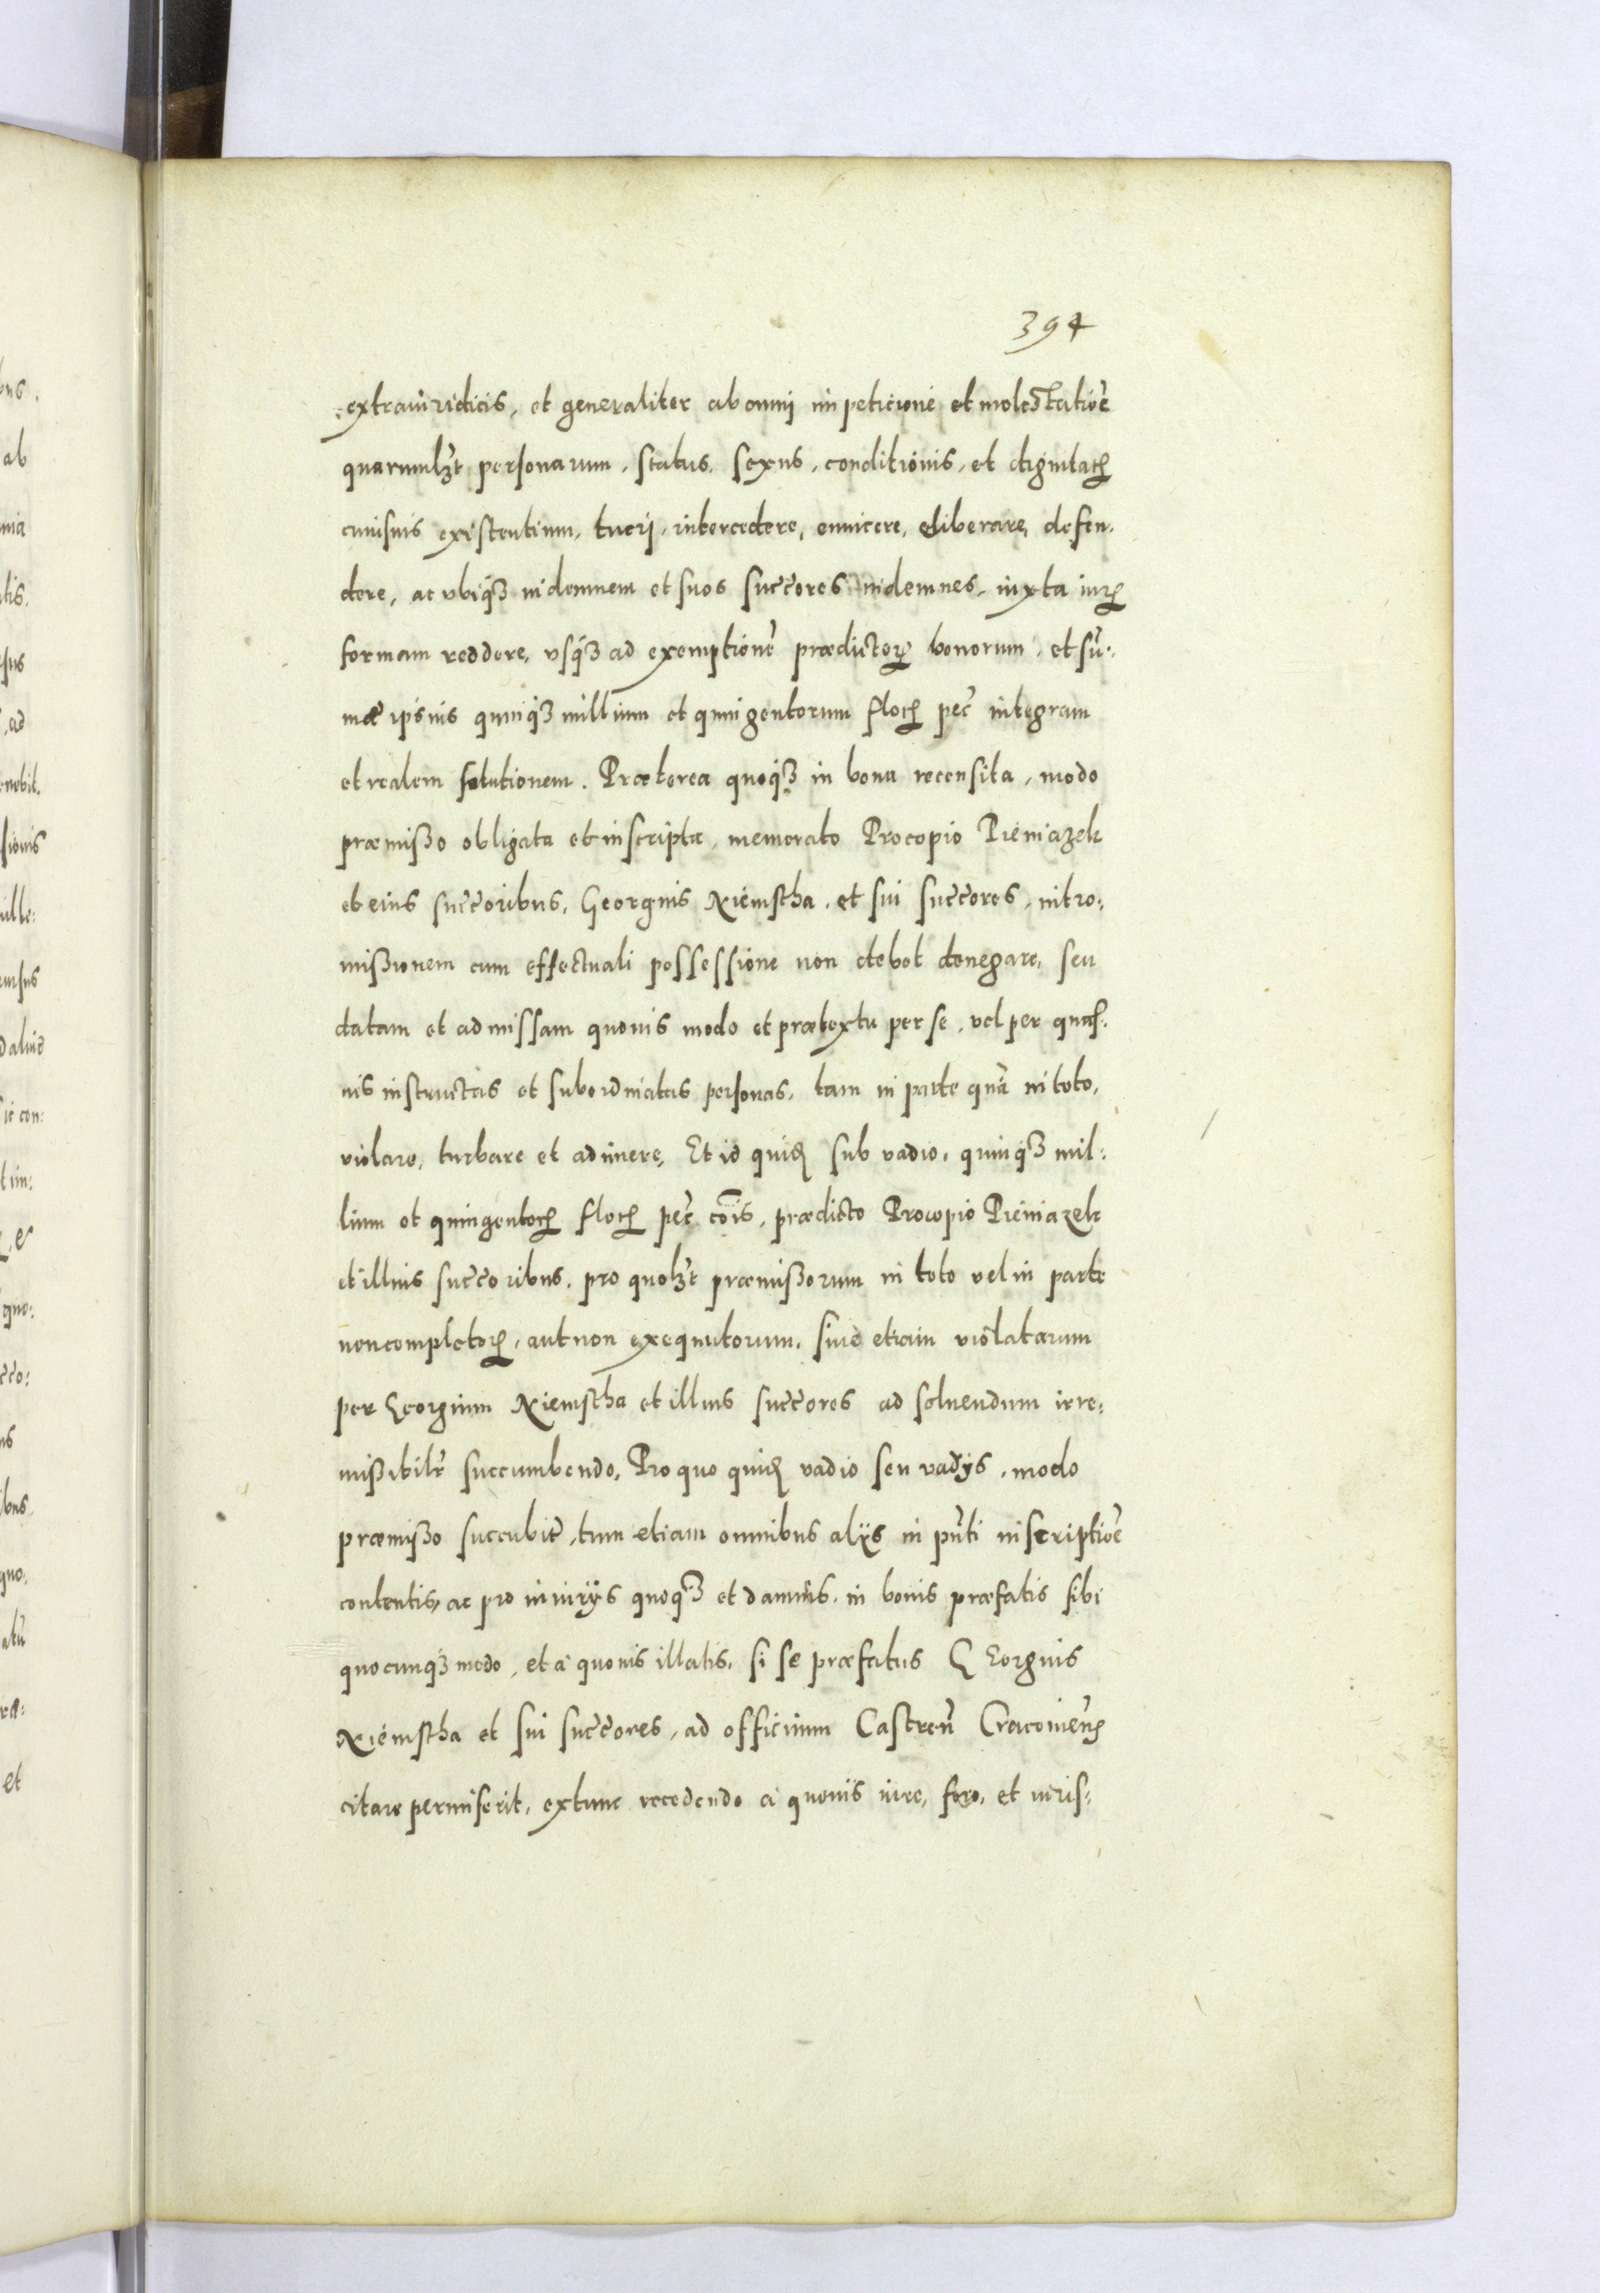 394
extraiuridicis, et generaliter ab omni impeticione et molestatioe
quarumlzt personarum, status, sexus, conditionis, et dignitatis
cuiusuis existentium, tueri, intercedere, euuicere, eliberare, defen-
dere, ac vbiqz indemnem et suos succores indemnes, iuxta iuris
formam reddere, vsqz ad exemptione prædictor bonorum, et su-
mæ ipsius quinqz millium et quingentorum floren pec integram
et realem solutionem. Præterea quoqz in bona recensita, modo
præmisso obligata et inscripta, memorato Procopio Pieniazek
et eius succoribus, Georgius Niemstha, et sui succores, intro:
missionem cum effectuali possessione non debet denegare, seu
datam et admissam quouis modo et prætextu per se, vel per quas-
uis instructas et subordinatas personas, tam in parte qua in toto,
violare, turbare et adimere, Et id quid sub vadio, quinqz mil:
lium et quingentor floren pec cois, prædicto Procopio Pieniazek
et illius succoribus, pro quolzt præmissorum in toto vel in parte
non completor, aut non exequutorum, siue etiam violatarum
per Georgium Niemstha et illius succores ad soluendum irre:
missibilr succumbendo, Pro quo quid vadio seu vadys, modo
præmisso succubit, tum etiam omnibus alys in pnti inscriptioe
contentis, ac pro iniurys quoqz et damnis, in bonis præfatis sibi
quocunqz modo, et a quouis illatis, si se præfatus Georgius
Niemstha et sui succores, ad officium Castren Cracouiens
citare permiserit, extunc recedendo a quouis iure, foro, et iuris:
bus.
ab
ad
enebit.
sionis
ille:
d aliud
sic con:
t im:
quo:
cco:
quo,
et